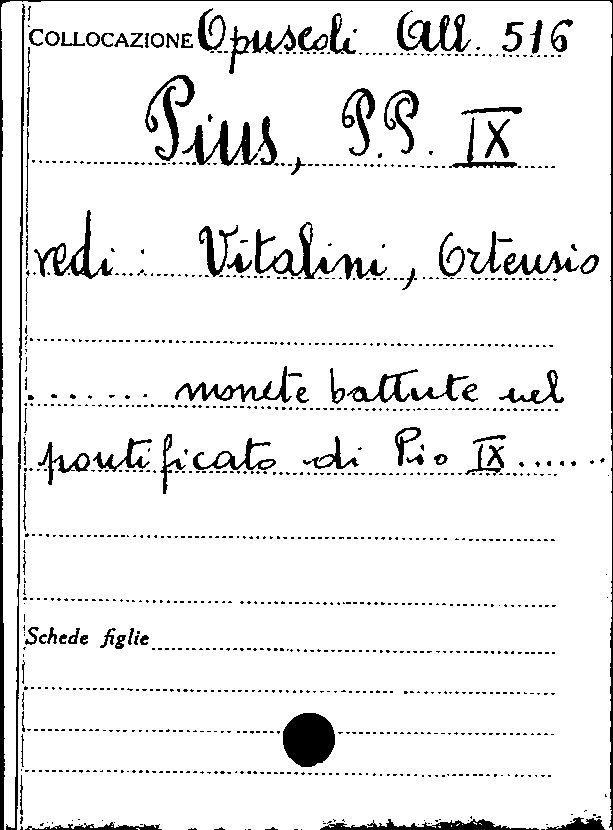 COLLOCAZIONE Opuscoli All. 516
Pius, P.P. IX
vedi: Vitalini, Ortensio
....... monete battute nel
pontificato di Pio IX.......
Schede figlie